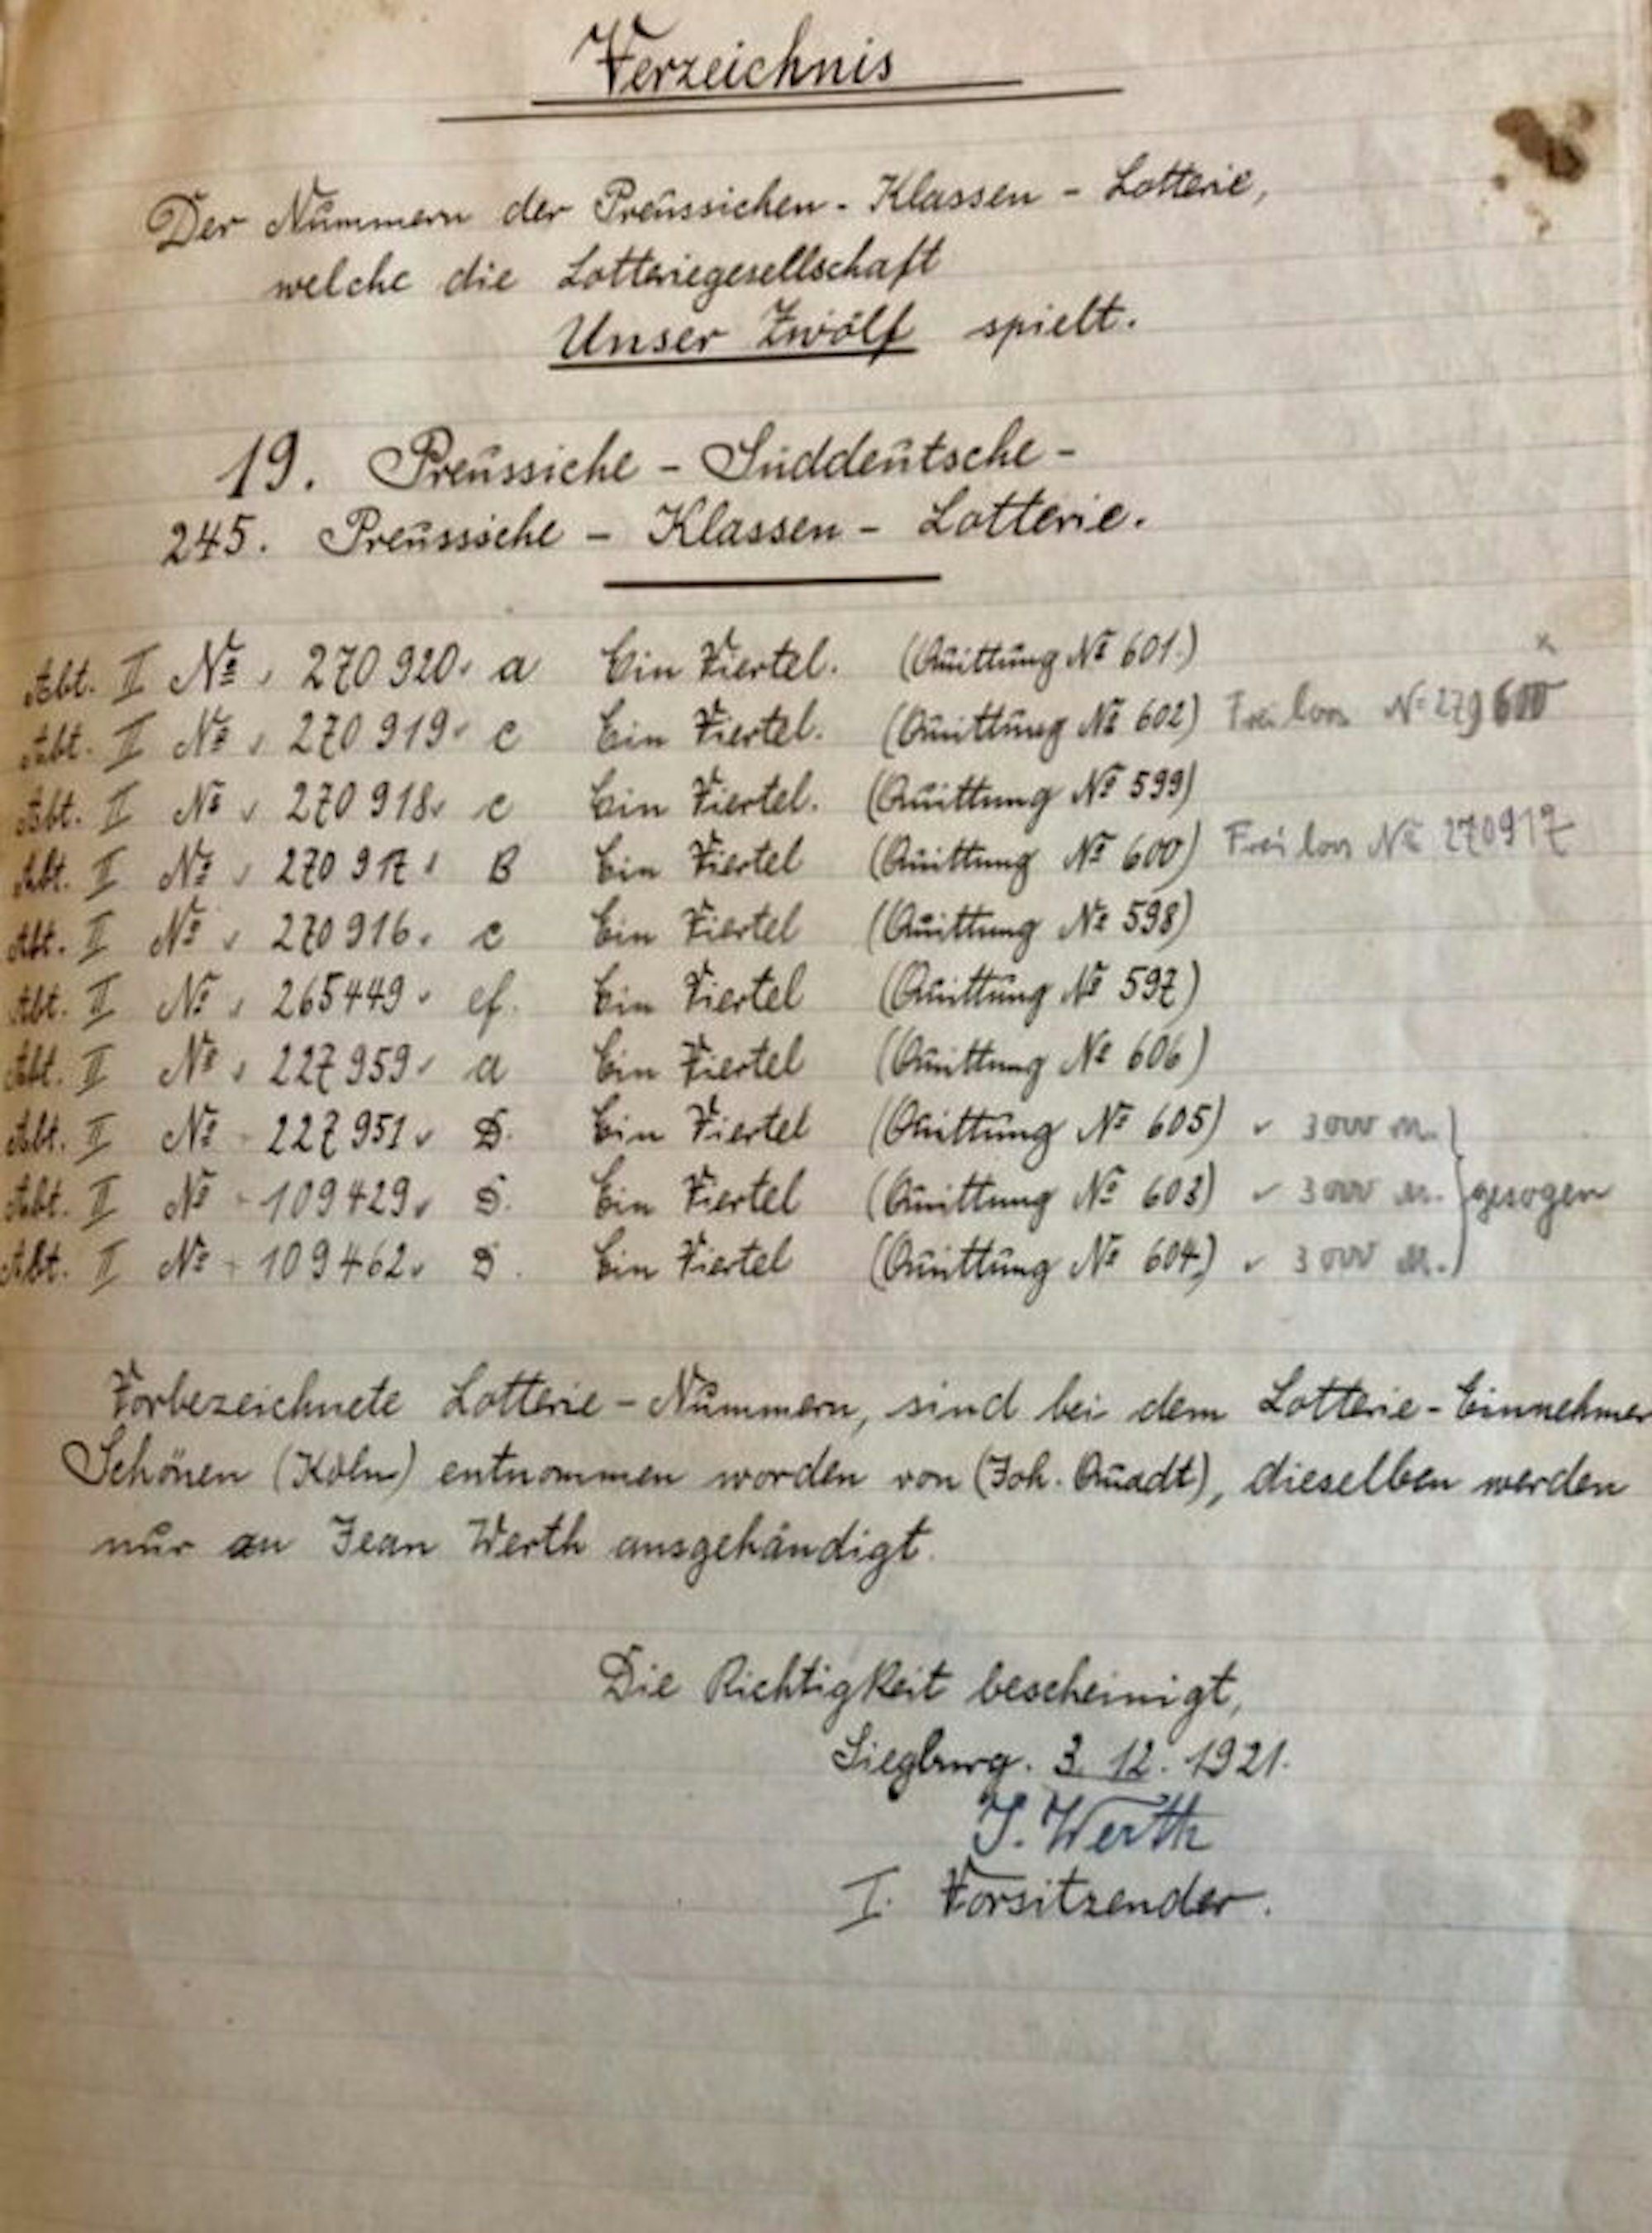 Verzeichnis
Der Nummern der Preussichen - Klassen - Lotterie,
welche die Lotteriegesellschaft
Unser Zwölf spielt.
19. Preussiche - Süddeutsche -
245. Preussiche - Klassen - Lotterie.
Abt. II № 270920 a Ein Viertel. (Quittung № 601)
Abt. II № 270919 c Ein Viertel. (Quittung № 602) Freilos №
Abt. II № 270918 c Ein Viertel. (Quittung № 599)
Abt. II № 270917 B Ein Viertel (Quittung № 600) Freilos № 270917
Abt. II № 270916 c Ein Viertel (Quittung № 598)
Abt. II № 265449 Ein Viertel (Quittung № 597)
Abt. II № 227959 a Ein Viertel (Quittung № 606)
Abt. II № 227951 D. Ein Viertel (Quittung № 605) 3000 M.
Abt. II № 109429 Ein Viertel (Quittung № 603) 3000 M. gezogen
Abt. II № 109462 D. Ein Viertel (Quittung № 604) 3000 M.
Vorbezeichnete Lotterie - Nummern, sind bei dem Lotterie - Einnehmer
Schönen (Köln) entnommen worden von (Joh. Quadt), dieselben werden
nur an Jean Werth ausgehändigt.
Die Richtigkeit bescheinigt,
Siegburg. 3. 12. 1921.
J. Werth
I. Vorsitzender.